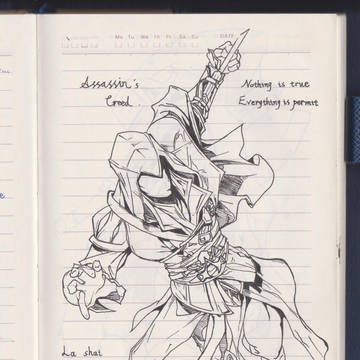 Mo Tu We Th Fr Sa Su DATE
Assassin's
Creed.
Nothing is true
Everything is permit
La shat